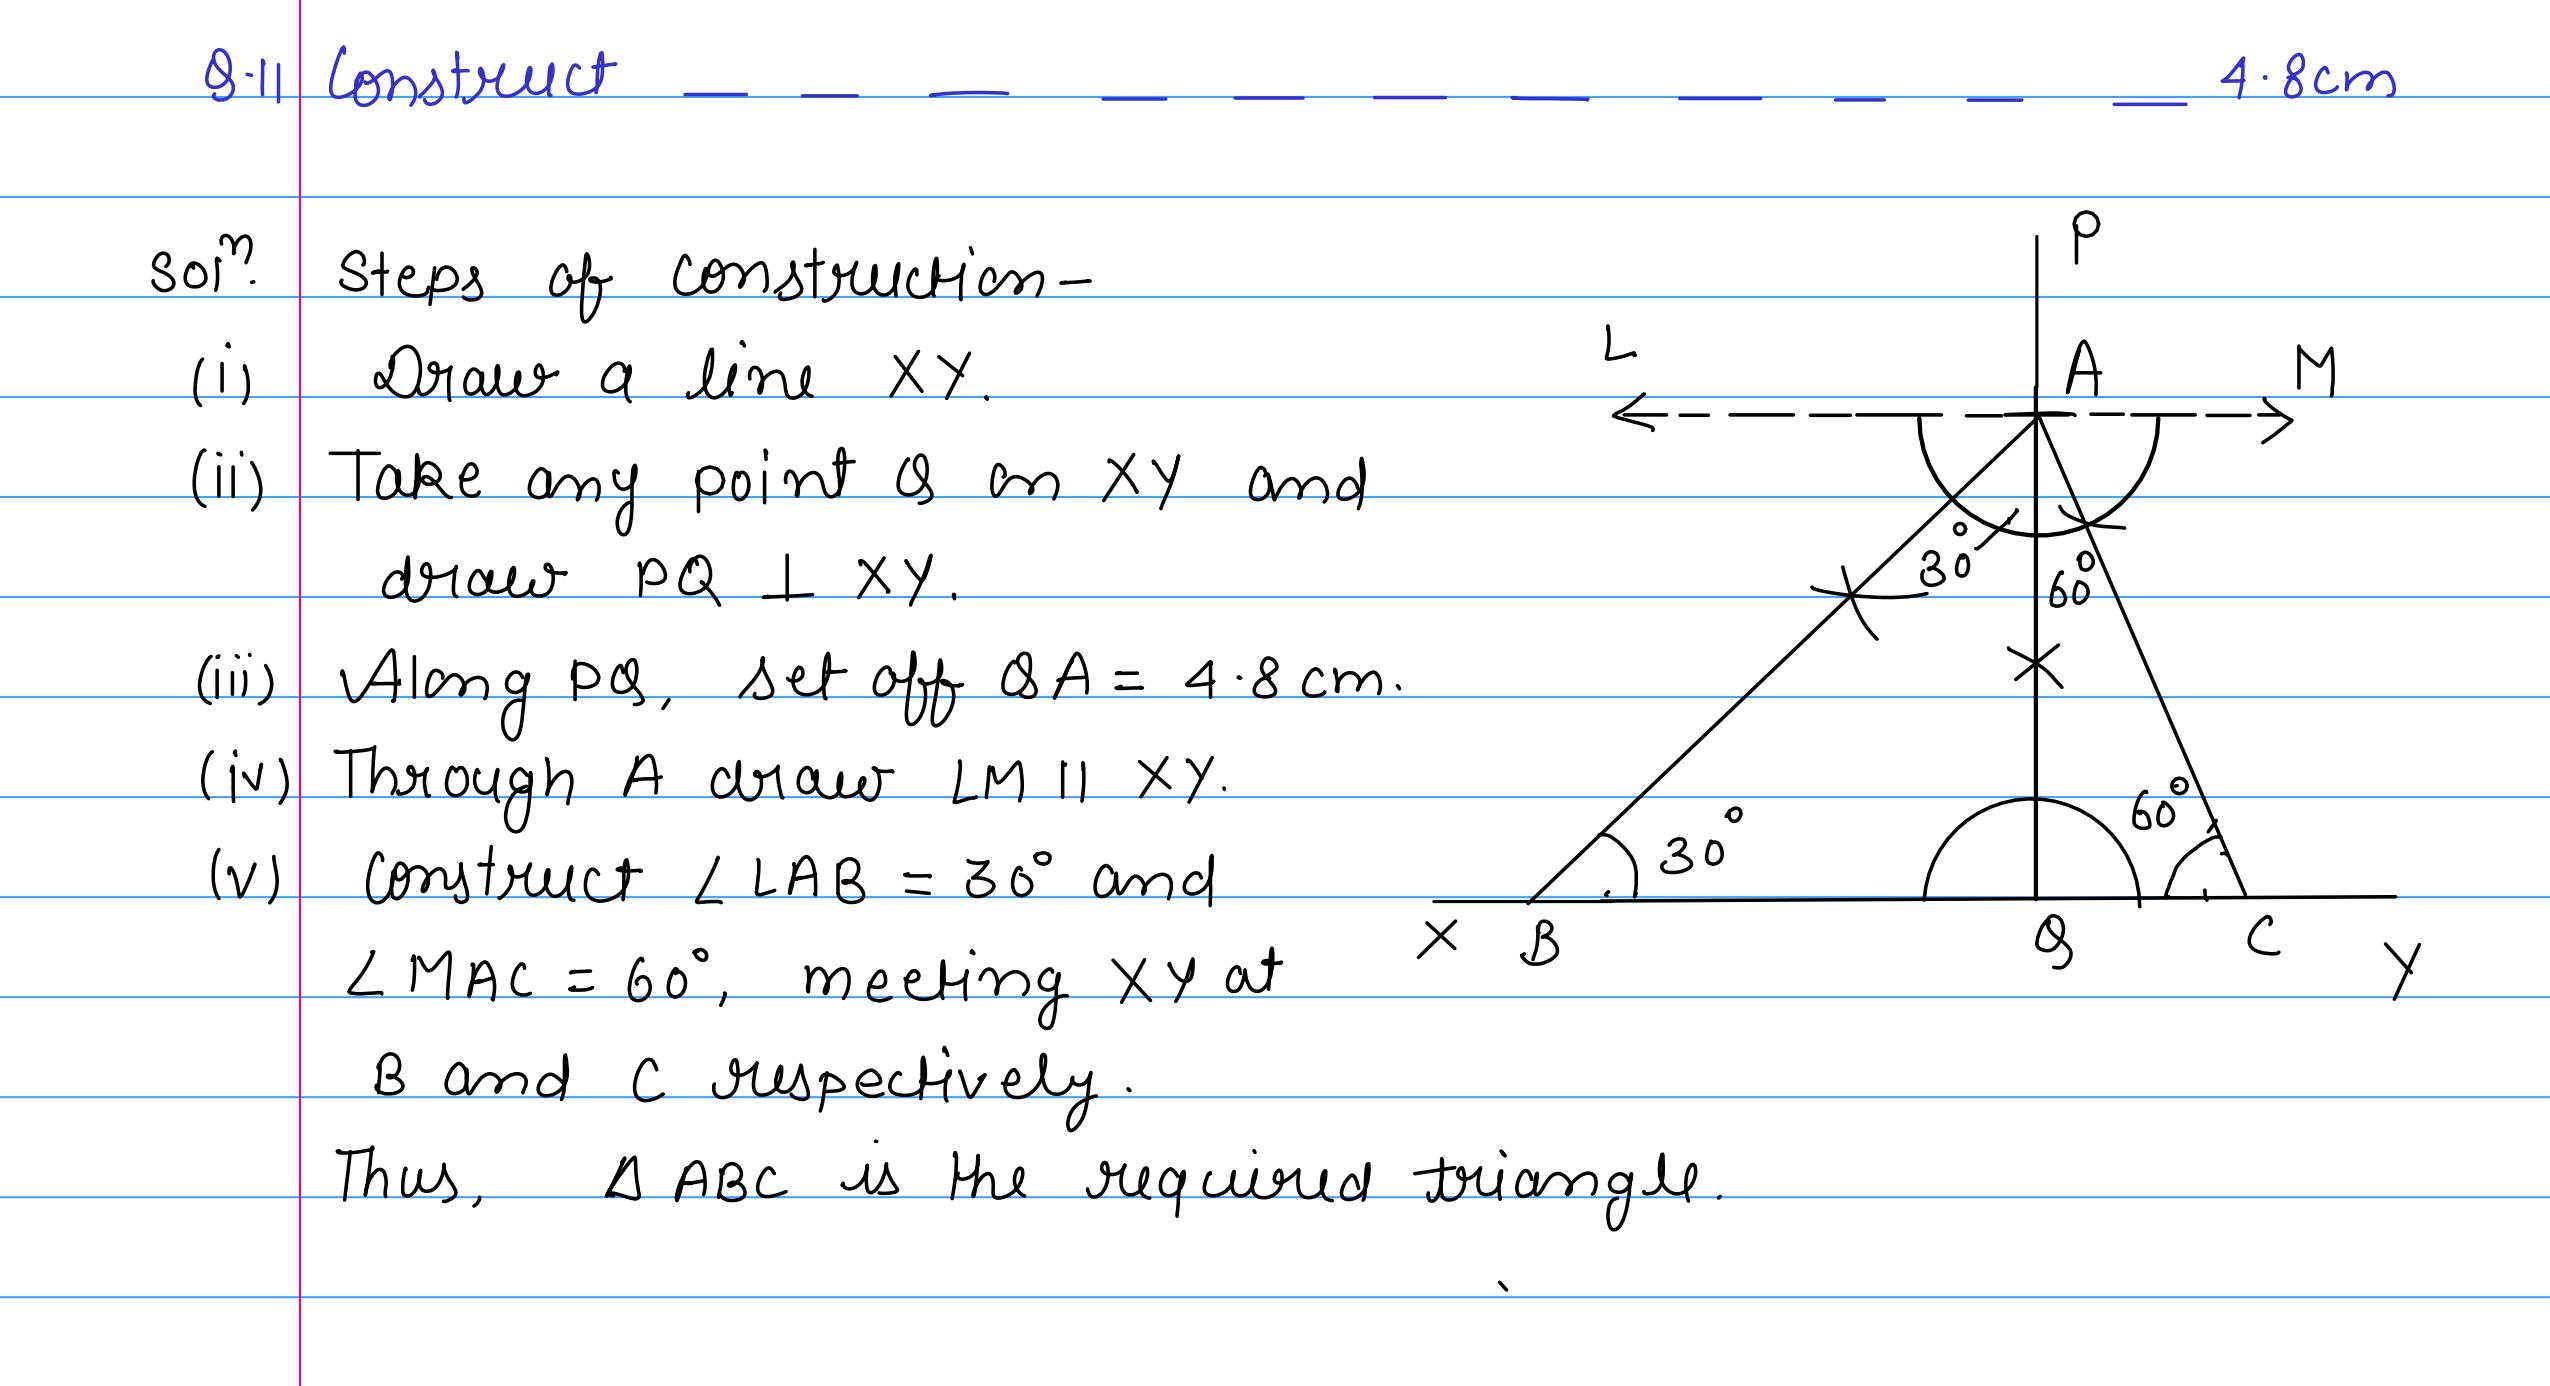 Q.11 Construct _ _ _ _ _ _ _ _ _ _ _ 4.8cm
Solⁿ. Steps of construction-
(i) Draw a line XY.
(ii) Take any point Q on XY and
draw PQ ⊥ XY.
(iii) Along PQ, set off QA = 4.8 cm.
(iv) Through A draw LM || XY.
(v) Construct ∠LAB = 30° and
∠MAC = 60°, meeting XY at
B and C respectively.
Thus, Δ ABC is the required triangle.
P
L A M
30° 60°
30° 60°
X B Q C Y